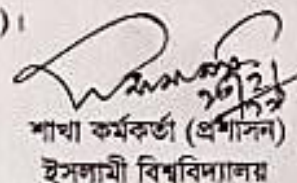 )।
শাখা কর্মকর্তা (প্রশাসন)
ইসলামী বিশ্ববিদ্যালয়